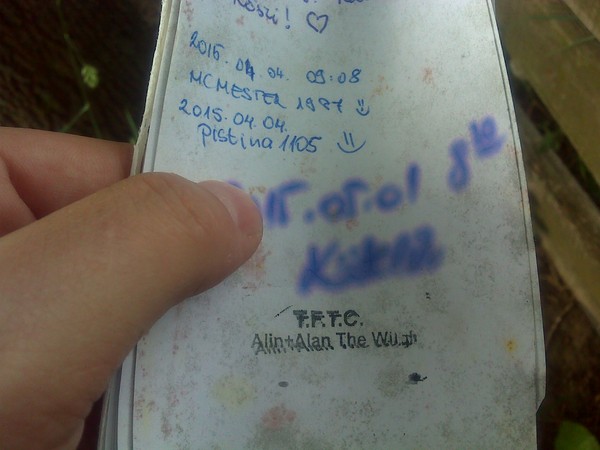 Köszi! ♡
2015. 04. 04. 09:08
MCMESTER 1987 :)
2015.04.04.
Pistina1105 :)
15.05.01 8
T.F.T.C.
Alin+Alan The